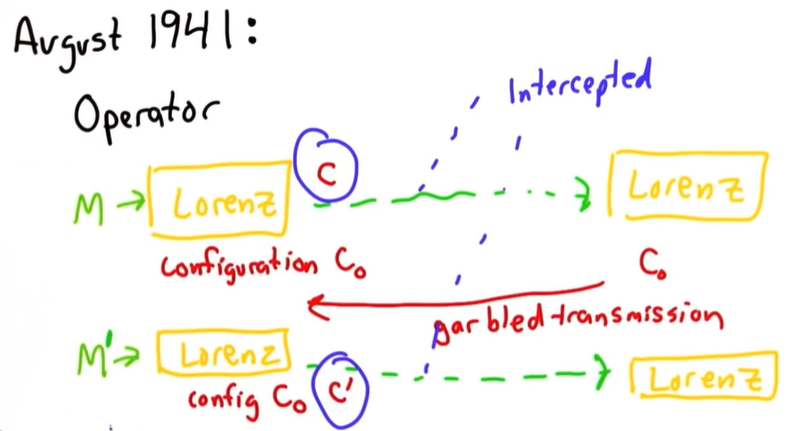 August 1941:
Intercepted
Operator
M → Lorenz C Lorenz
configuration C₀ C₀
garbled transmission
M' → Lorenz C' Lorenz
config C₀